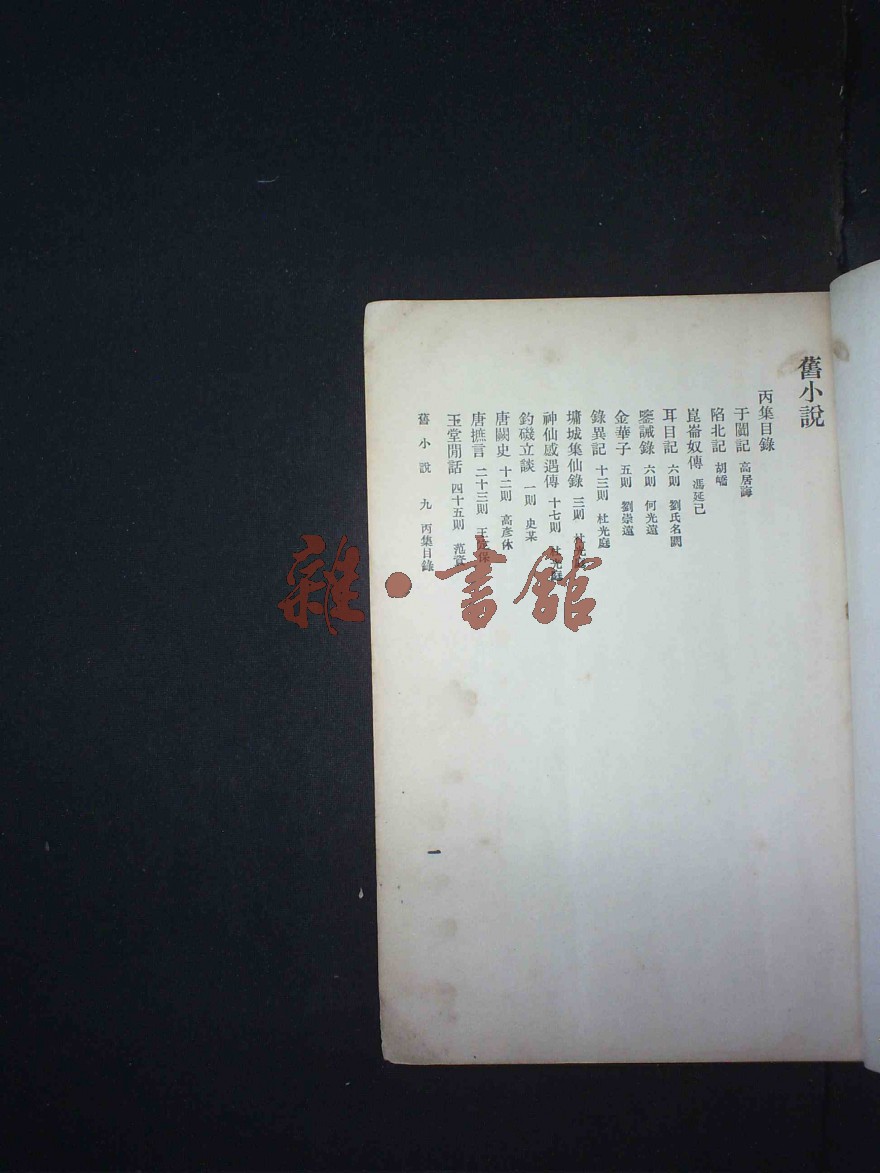 舊小說
丙集目錄
于闐記 高居誨
陷北記 胡嶠
崑崙奴傳 馮延己
耳目記 六則 劉氏名闕
鑒誡錄 六則 何光遠
金華子 五則 劉崇遠
錄異記 十三則 杜光庭
墉城集仙錄 三則 杜光庭
神仙感遇傳 十七則 杜光庭
釣磯立談 一則 史某
唐闕史 十二則 高彥休
唐摭言 二十三則 王定保
玉堂閒話 四十五則 范資
舊小說 九 丙集目錄
一
雜·書館